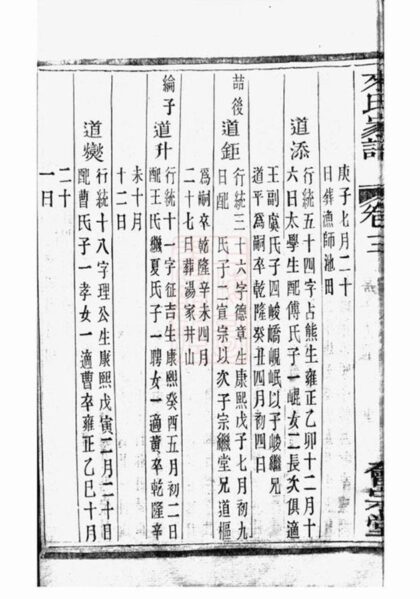 來氏家譜
卷三
會宗堂
庚子七月二十
日葬漁師池田
道添
行統五十四字占熊生雍正乙卯十二月十
六日太學生配傅氏子一崐女二長次俱適
王副虞氏子四峻嶠峴岷以子峻繼兄
道平爲嗣卒乾隆癸丑四月初四日
喆後
道鉅
行統三十六字德章生康熙戊子七月初九
日配 氏子二宣宗以次子宗繼堂兄道樞
爲嗣卒乾隆辛未四月
二十七日葬湯家井山
綸子
道升
行統十一字征吉生康熙癸酉五月初二日
配王氏繼夏氏子一聘女一適黄卒乾隆辛
未十月
十二日
道爕
行統十八字理公生康熙戊寅二月二十日
配曹氏子一孝女一適曹卒雍正乙巳十月
二十
一日